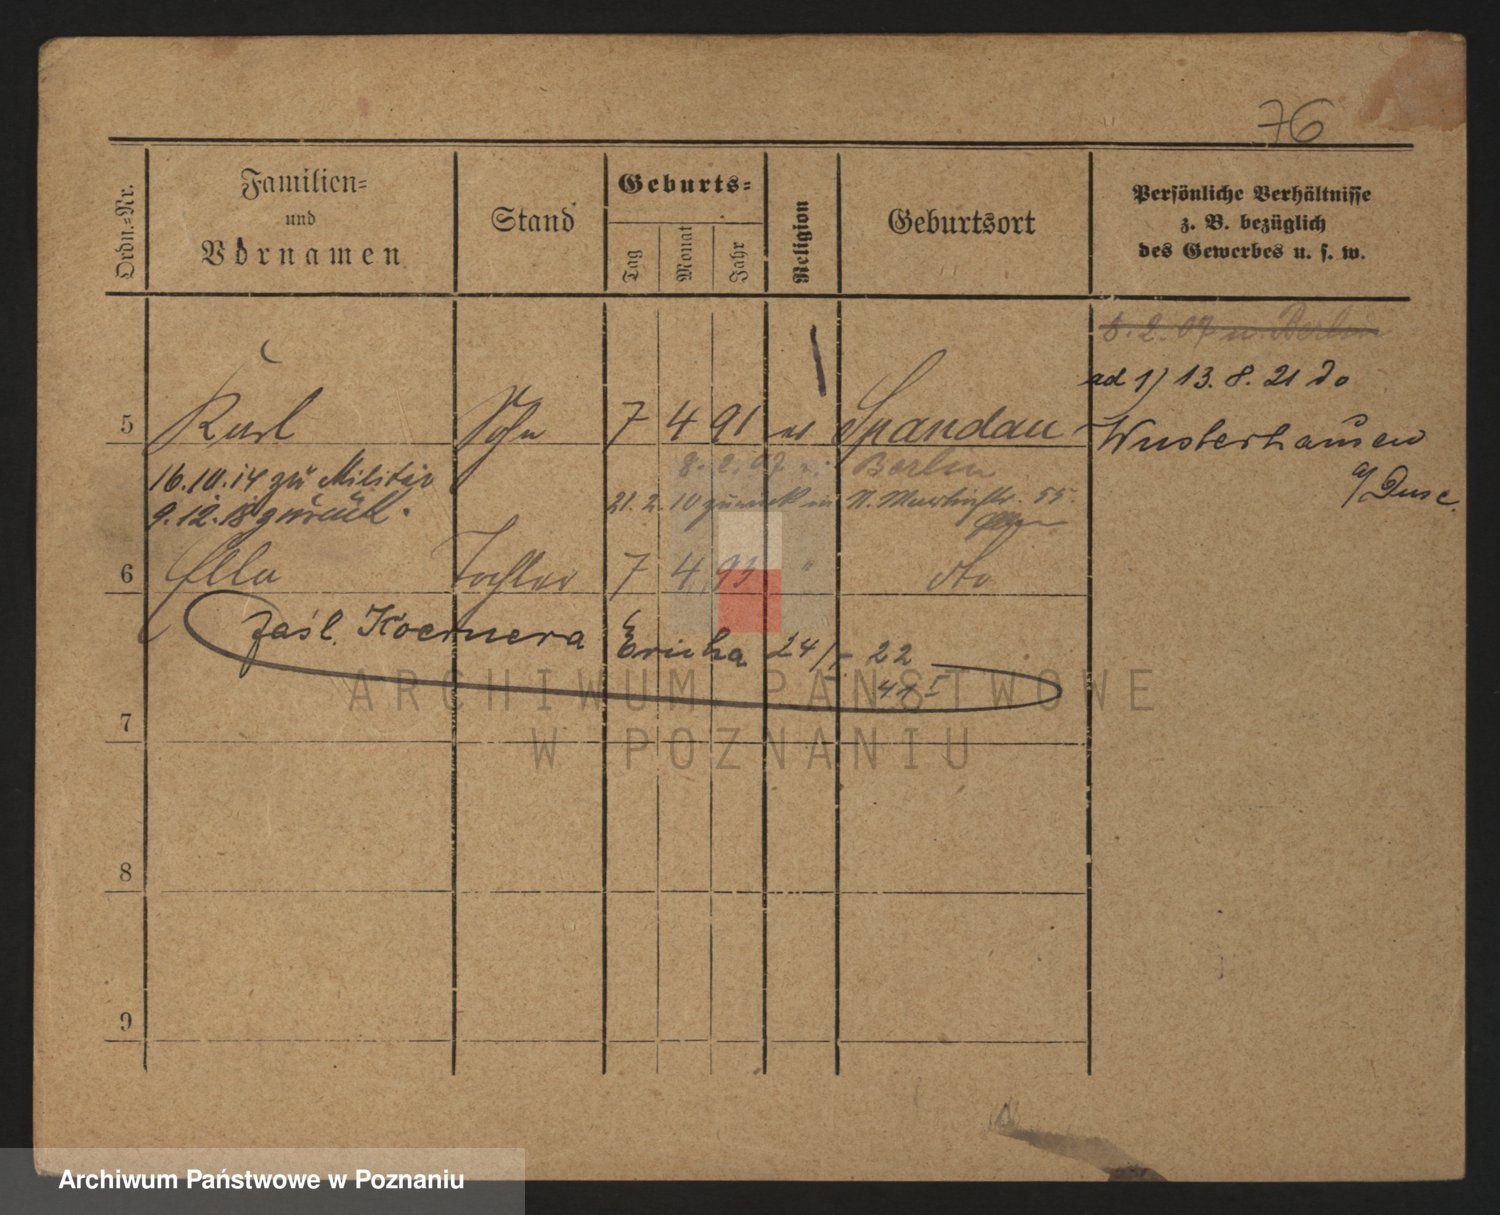 76
Ordn.-Nr.
Familien-
und
Vornamen
Stand
Geburts-
Tag
Monat
Jahr
Religion
Geburtsort
Persönliche Verhältnisse
z. B. bezüglich
des Gewerbes u. s. w.
8. 2. 07 n. Berlin
ad 1) 13. 8. 21
5 Karl Sohn 7 4 91 ev Spandau
Wusterhausen
a/ Dosse
16.10.14 zu Militär
8. 2. 07 n. Berlin
9.12.18 zurück.
21. 2. 10 zurück in St. Martinstr. 55.
6 Ella Tochter 7 4 93 " dto
zaśl. Koernera Ericha 24/ 22
41 I
7
8
9
ARCHIWUM PAŃSTWOWE
W POZNANIU
Archiwum Państwowe w Poznaniu